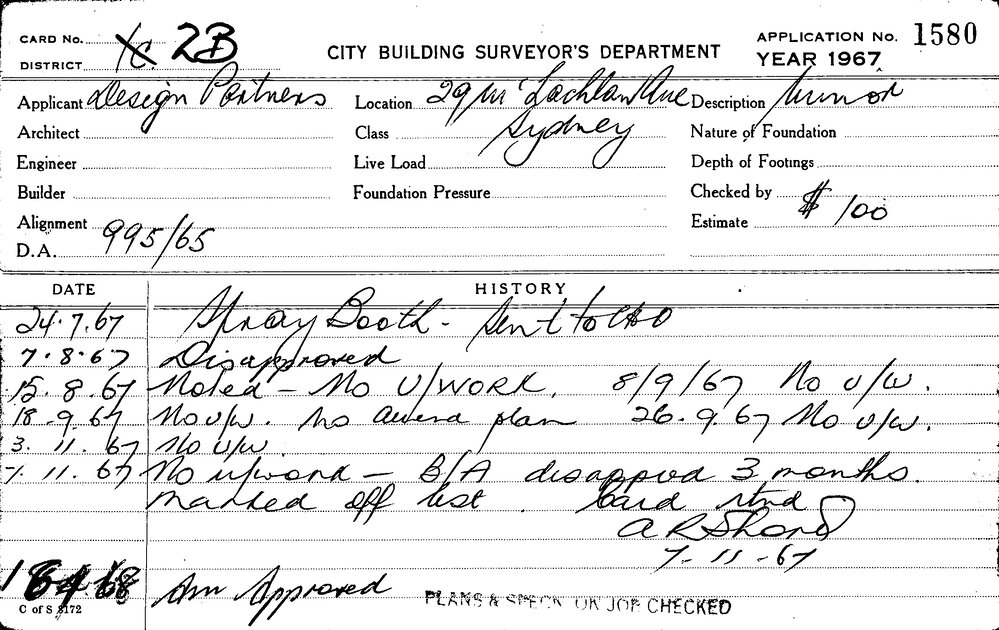 CARD No. 1C 2B
DISTRICT
CITY BUILDING SURVEYOR'S DEPARTMENT
APPLICATION No. 1580
YEAR 1967
Applicant Design Partners
Location 29 McLachlan Ave
Sydney
Description Minor
Architect
Class
Nature of Foundation
Engineer
Live Load
Depth of Footings
Builder
Foundation Pressure
Checked by
Alignment
Estimate $100
D.A. 995/65
DATE HISTORY
24.7.67 Spray Booth - sent to
7.8.67 Disapproved
15.8.67 Noted - No U/WORK. 8/9/67 No u/w.
18.9.67 No u/w. No amend plan 26.9.67 No u/w.
3.11.67 No u/w
7.11.67 No u/work - B/A disappvd 3 months.
marked off list. Card rtnd
7-11-67
Am Approved
C of S 8172
PLANS & SPECN ON JOB CHECKED